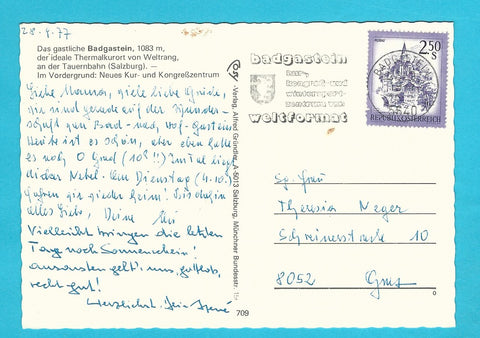 28. 9. 77
Das gastliche Badgastein, 1083 m,
der ideale Thermalkurort von Weltrang,
an der Tauernbahn (Salzburg). —
Im Vordergrund: Neues Kur- und Kongreßzentrum
Liebe Mama, liebe
wir sind gerade auf der
von Bad- nach Hof-Gastein.
Heute ist es schön, aber
es noch 0 Grad (10h!!) und
Nebel. Am Dienstag (4.10.)
fahren wir wieder heim! Bis dahin
alles Liebe, Deine
Vielleicht bringen die letzten
Tage noch Sonnenschein!
Ansonsten geht's uns, gottlob,
recht gut!
Herzlichst, Dein René
Cosy
-Verlag, Alfred Gründler, A-5013 Salzburg, Münchner Bundesstr.
709
badgastein
kur-,
kongreß- und
wintersport-
zentrum von
weltformat
BADGASTEIN
5640
2.50
S
REPUBLIK ÖSTERREICH
Frau
Theresia Neger
Schreinerstraße 10
8052 Graz